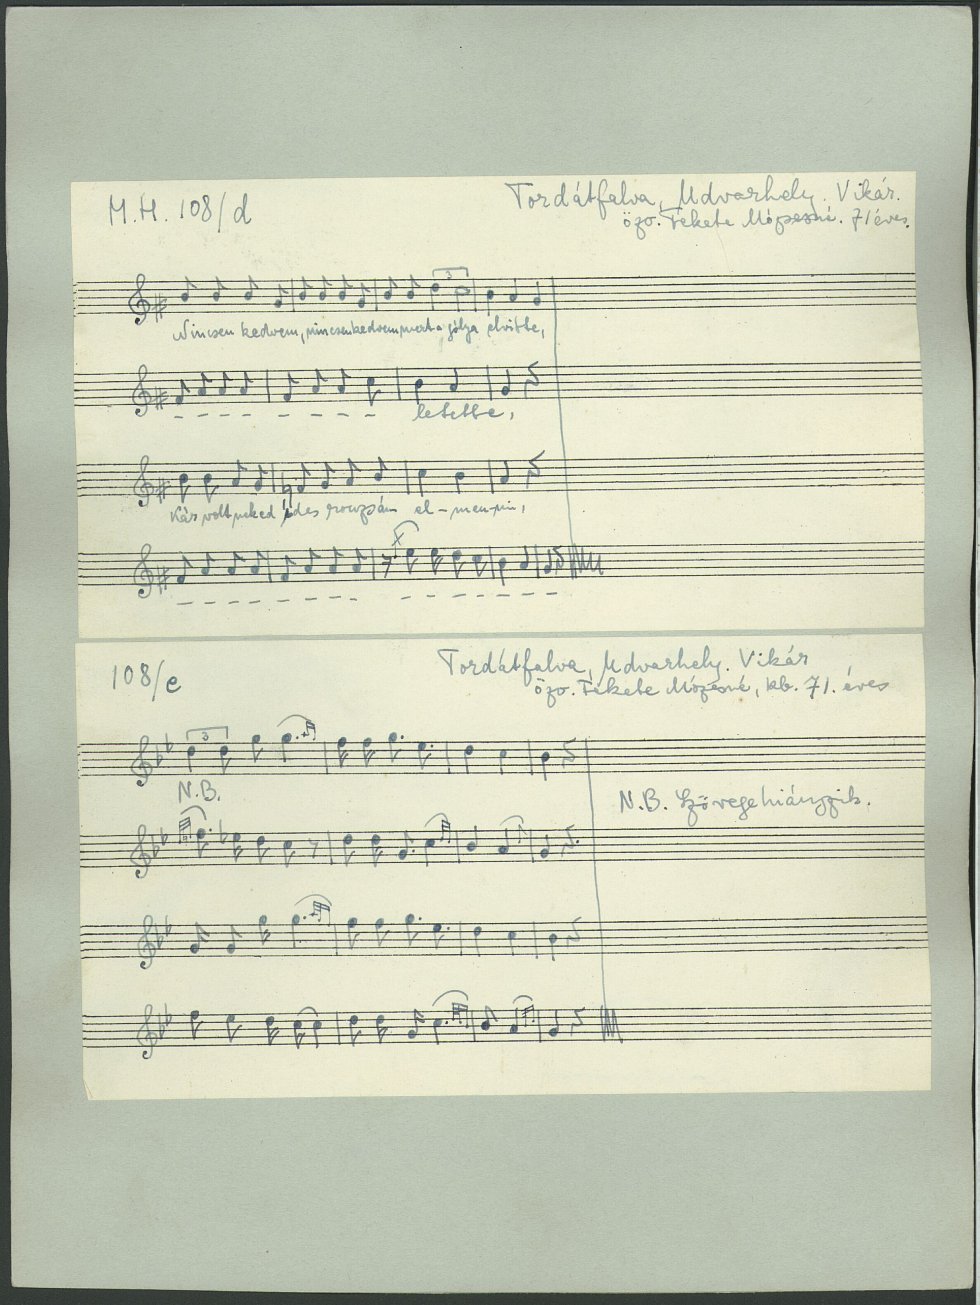 M.H. 108/d
Tordátfalva, Udvarhely. Vikár.
özv. Fekete Mózesné. 71 éves.
3
Nincsen kedvem, nincsen kedvem, mert a gólya elvitte,
letette,
Kár volt neked édes rózsám el-men-ni,
108/e
Tordátfalva, Udvarhely. Vikár
özv. Fekete Mózesné, kb. 71. éves
3
N.B.
N.B. Szövege hiányzik.